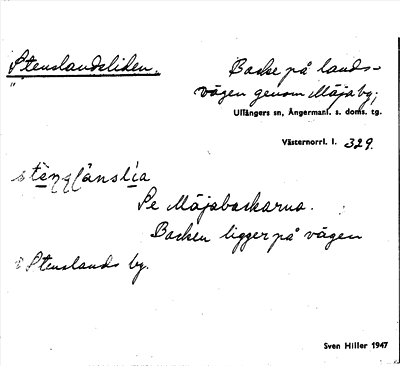 Stenslandsliden.
Backe på lands-
vägen genom Mäja by;
Ullångers sn, Ångermanl. s. doms. tg.
Västernorrl. l. 329.
Se Mäjabackarna.
Backen ligger på vägen
i Stenslands by.
Sven Hiller 1947